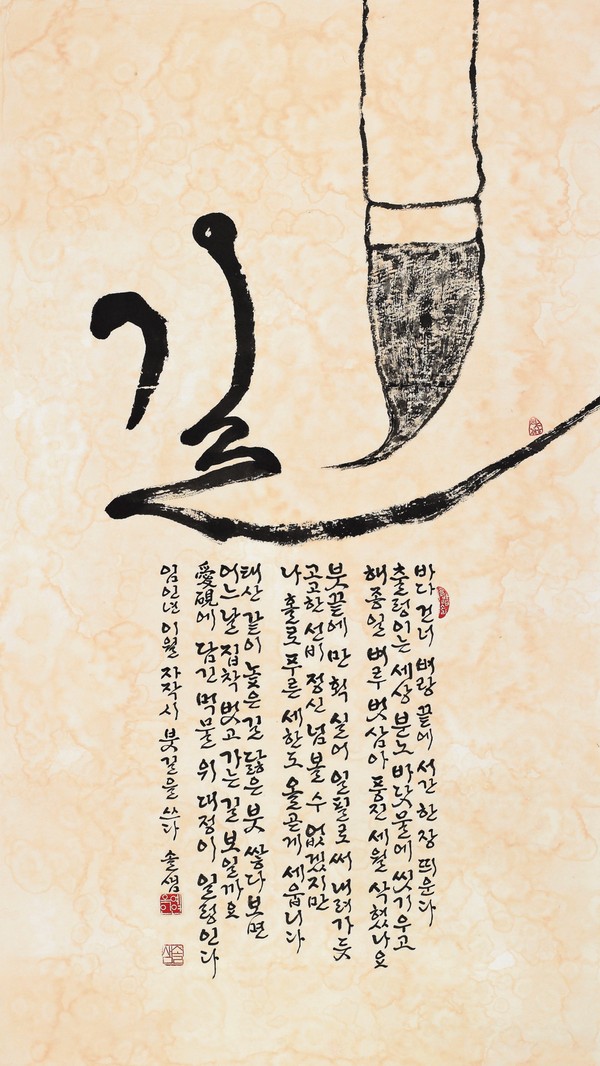 길
바다 건너 벼랑 끝에 서간 한 장 띄운다
출렁이는 세상 분노 바닷물에 씻기우고
해종일 벼루 벗삼아 풍진 세월 삭혔나요
붓끝에 만 획 실어 일필로 써 내려가듯
고고한 선비 정신 넘볼 수 없겠지만
나 홀로 푸른 세한도 올곧게 세웁니다
태산 같이 높은 길 닳은 붓 쌓다보면
어느 날 집착 벗고 가는 길 보일까요
愛硯에 담긴 먹물 위 대정이 일렁인다
임인년 이월 자작시 붓길을 쓰다 솔샘